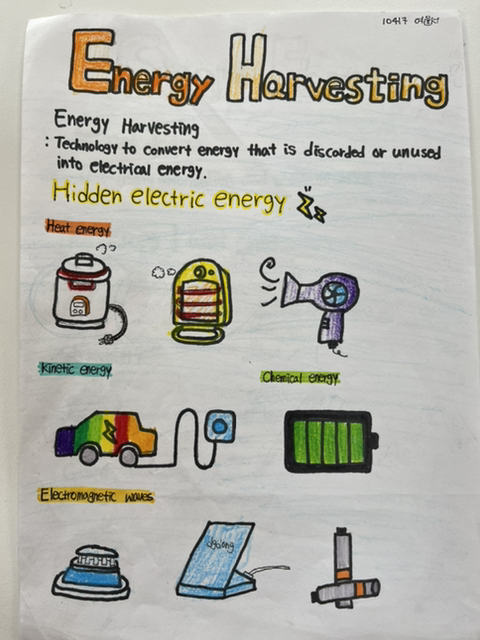 10417
Energy Harvesting
Energy Harvesting
: Technology to convert energy that is discarded or unused
into electrical energy.
Hidden electric energy
Heat energy
Kinetic energy
Chemical energy
Electromagnetic waves